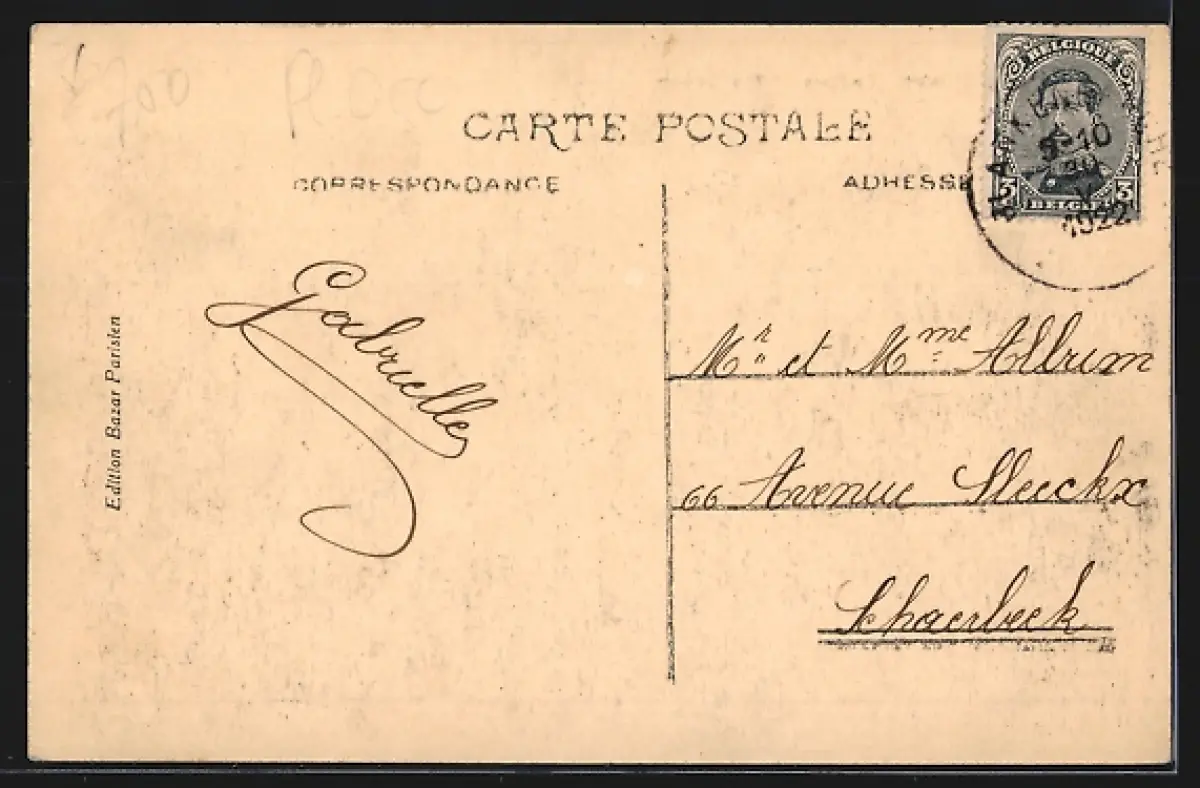 700
CARTE POSTALE
CORRESPONDANCE
ADRESSE
BELGIQUE
3 3
BELGIE
9-10
1922
Gabrielle
Edition Bazar Parisien
Mr et Mme
66 Avenue Sleeckx
Schaerbeek